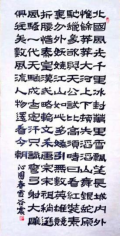 北國風光千里冰封萬里雪飄望長城內外
惟餘莽莽大河上下頓失滔滔山舞銀蛇原
馳蠟象欲與天公試比高須晴日看紅裝素
裹分外妖嬈江山如此多嬌引無數英雄競
折腰惜秦皇漢武略輸文采唐宗宋祖稍
遜風騷一代天驕成吉思汗只識彎弓射大雕
俱往矣數風流人物還看今朝
沁園春雪